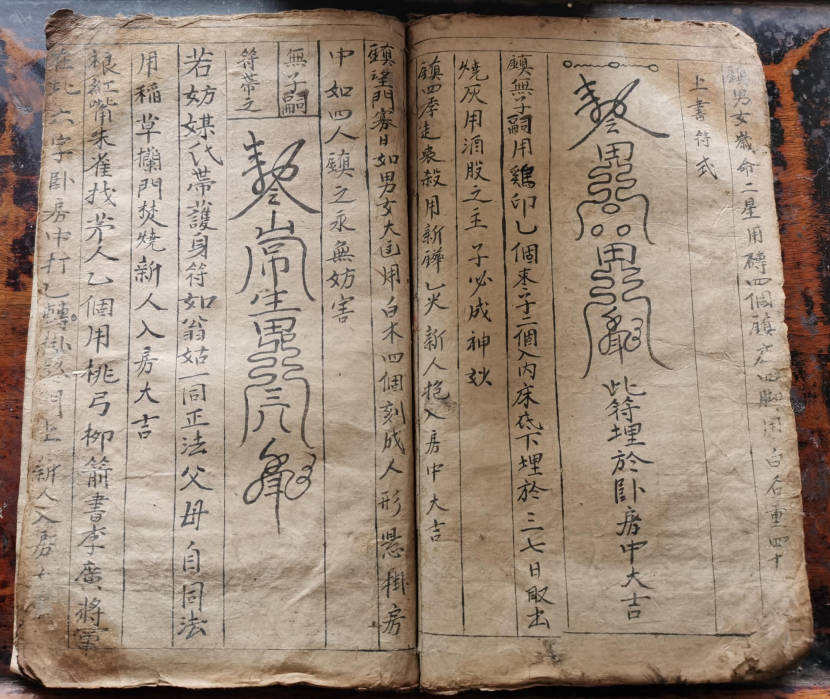 鎮男女歲命二星用磚四個鎮床四脚用白石重四十
上書符式
此符埋於卧房中大吉
鎮無子嗣用鷄卵乙個枣子二個入内床底下埋於三七日取出
燒灰用酒股之主子必成神妙
鎮四季走喪殺用新鏵乙火新人抱入房中大吉
鎮望門寡日如男女大
用白木四個刻成人形懸掛房
中如四人鎮之永無妨害
無子嗣
符帶之
若妨媒氏帶護身符如翁姑一同正法父母自同法
用稻草攔門焚燒新人入房大吉
粮紅嘴朱雀找茅人乙個用桃弓柳箭書李廣將軍
在此六字卧房中打乙轉掛
門上新人入房大